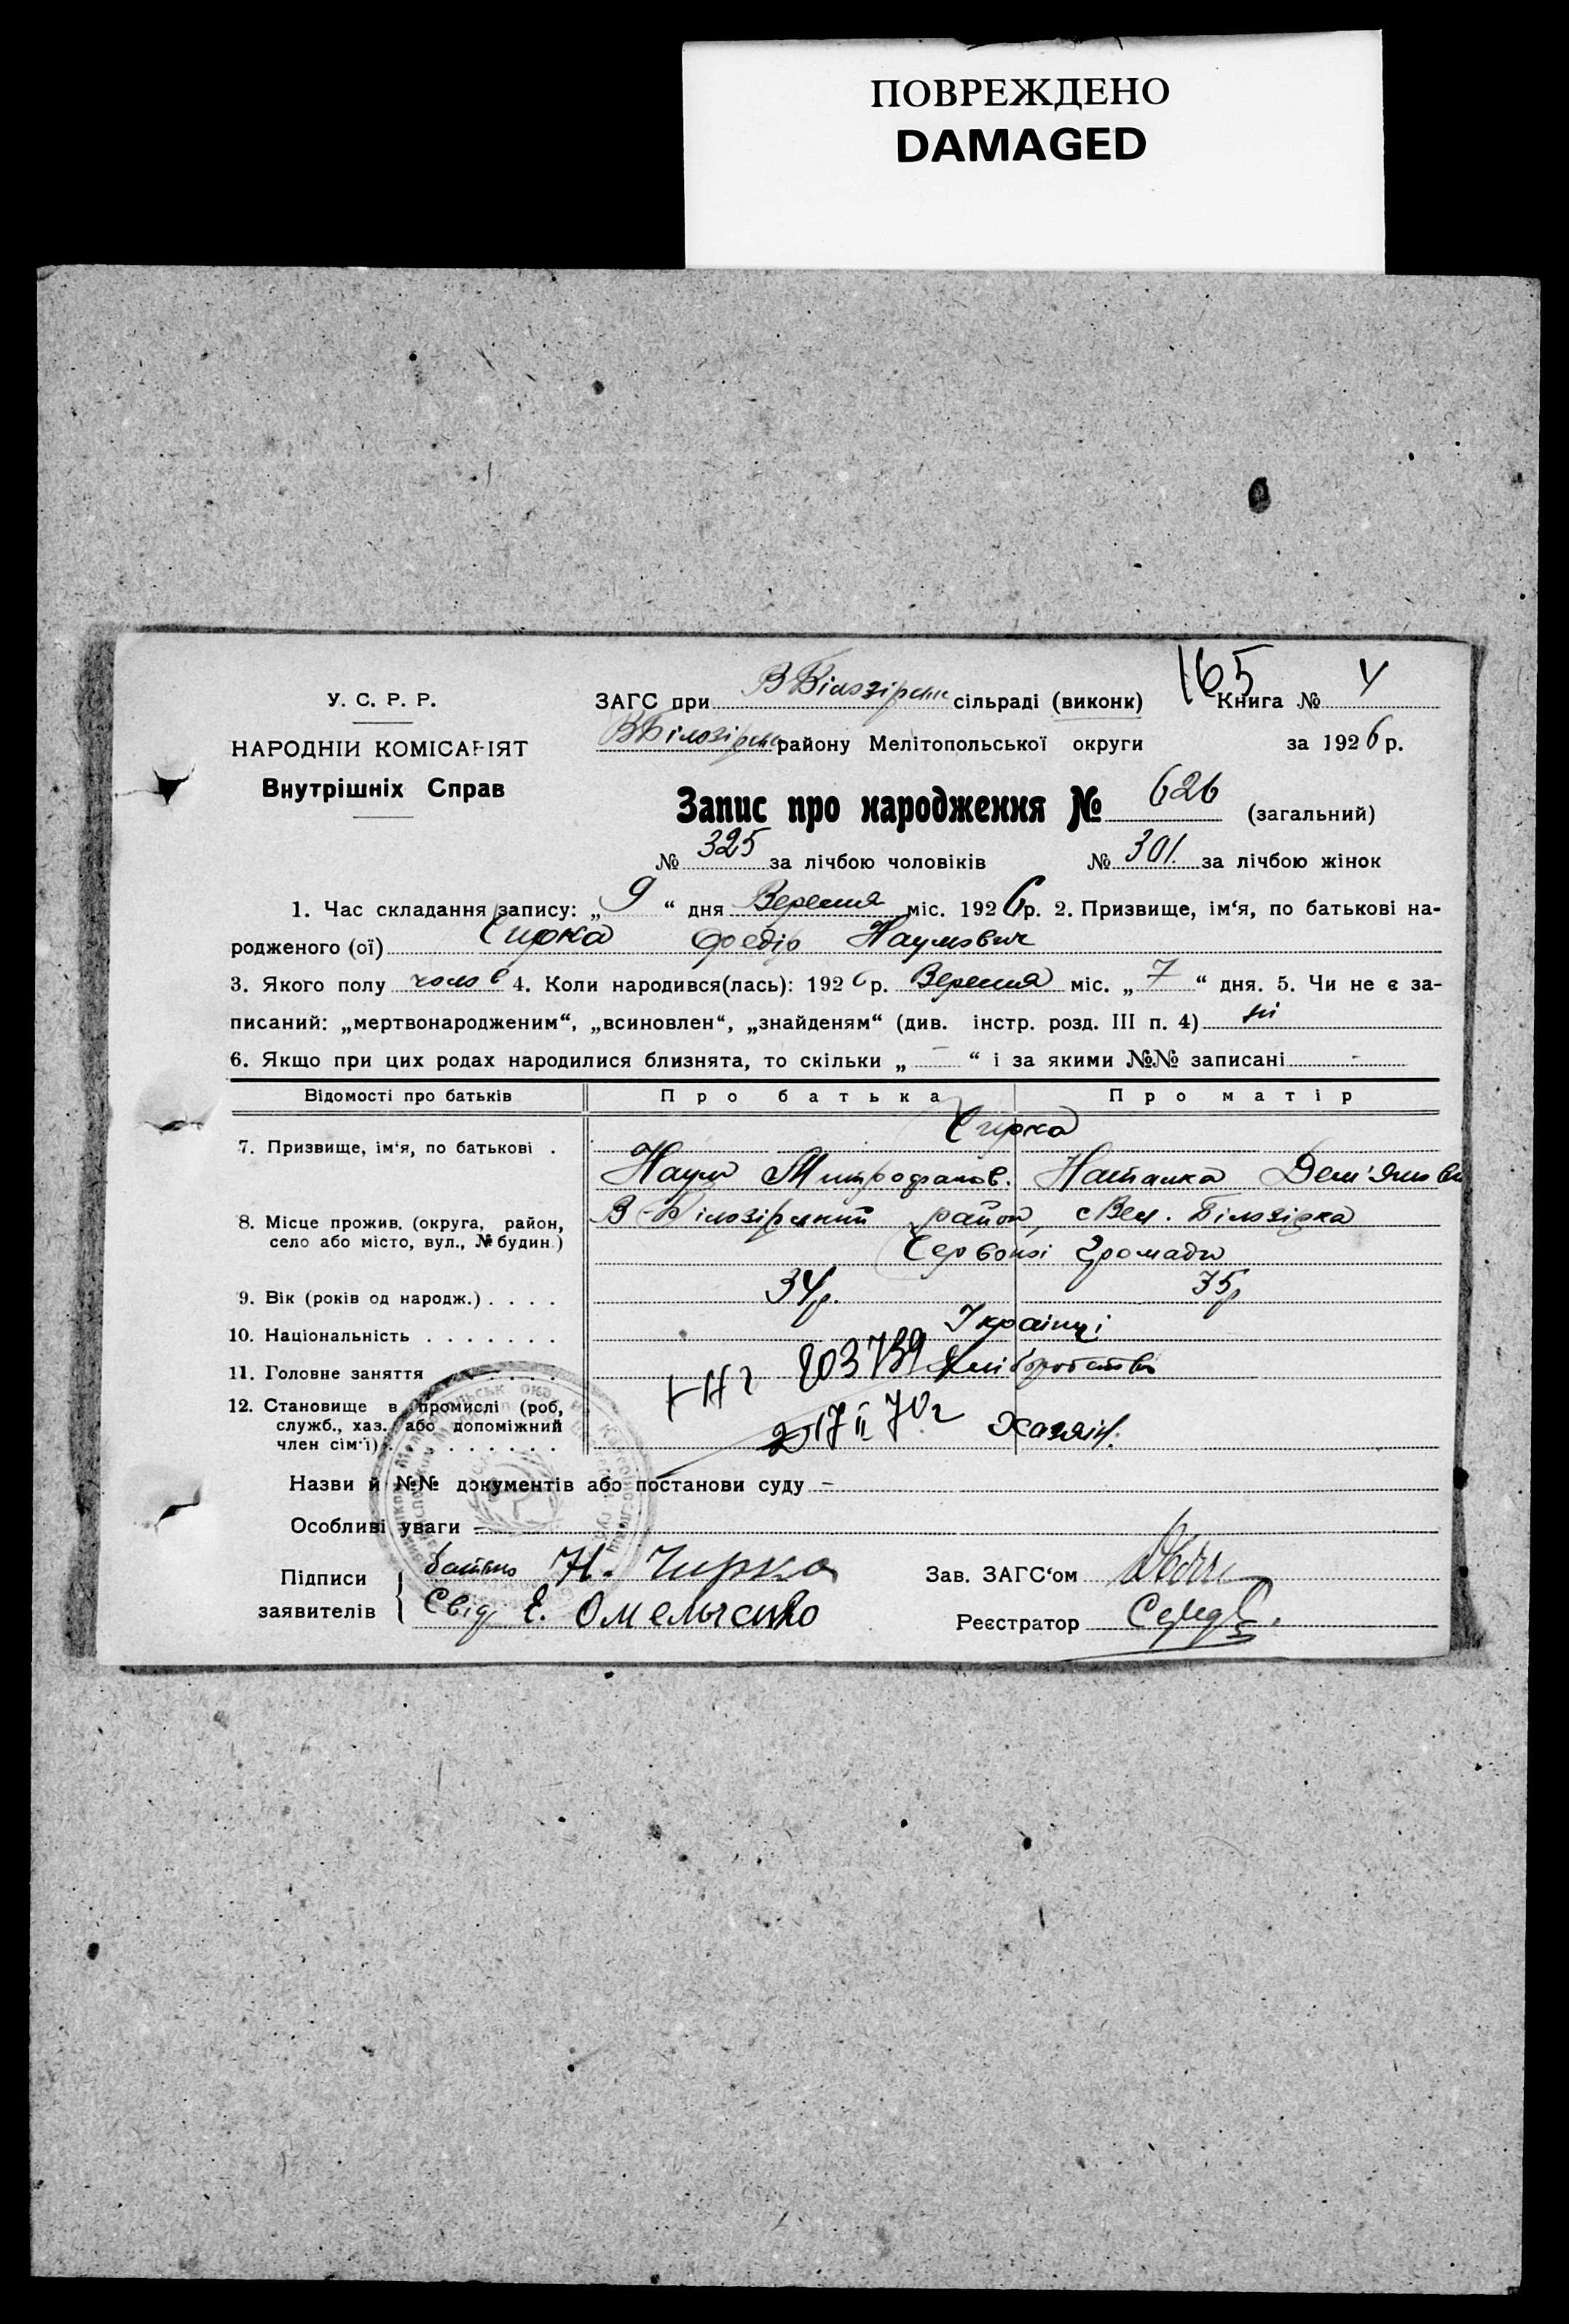 ПОВРЕЖДЕНО
DAMAGED
165
У. С. Р. Р.
НАРОДНІЙ КОМІСАРІЯТ
Внутрішніх Справ
ЗАГС при В Білозірськ сільраді (виконк) Книга № 4
В Білозірськ району Мелітопольської округи за 1926 р.
Запис про народження № 626 (загальний)
№ 325 за лічбою чоловіків № 301. за лічбою жінок
1. Час складання запису: „ 9 “ дня Вересня міс. 1926 р. 2. Призвище, ім‘я, по батькові на-
родженого (ої) Чирка Федір Наумович
3. Якого полу чолов 4. Коли народився(лась): 1926 р. Вересня міс. „ 7 “ дня. 5. Чи не є за-
писаний: „мертвонародженим“, „всиновлен“, „знайденям“ (див. інстр. розд. III п. 4) ні
6. Якщо при цих родах народилися близнята, то скільки „ — “ і за якими №№ записані -
Відомості про батьків Про батька Про матір
7. Призвище, ім‘я, по батькові . Чирка
Наум Митрофанов. Наталка Дем'янов
8. Місце прожив. (округа, район, село або місто, вул., № будин.) В Білозірський район, с Вел. Білозірка
Червоної Громади
9. Вік (років од народж.) . . . . 34 р. 35 р
10. Національність . . . . . . . Українці
11. Головне заняття Хліборобство
803739
17 II 70 г
12. Становище в промислі (роб, служб., хаз. або допоміжний член сім‘ї) Хазяін.
Назви й №№ документів або постанови суду –
Особливі уваги –
Підписи заявителів { батько Н. Чирка
Свід Е. Омельченко
Зав. ЗАГС‘ом
Реєстратор